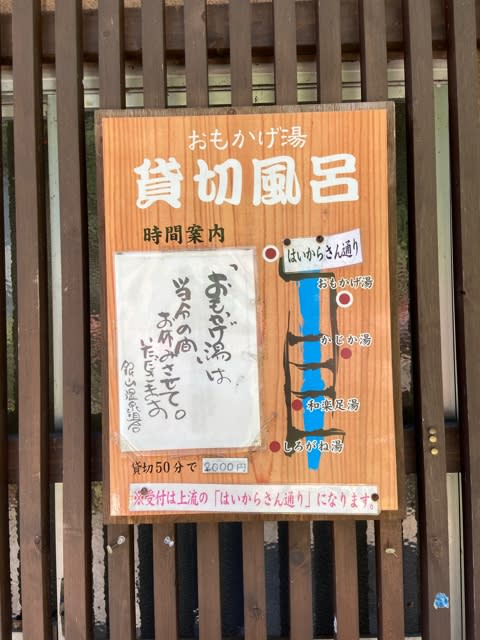 おもかげ湯
貸切風呂
時間案内
「おもかげ湯」は
当分の間
お休みさせて
いただきます。
銀山温泉組合
はいからさん通り
おもかげ湯
かじか湯
和楽足湯
しろがね湯
貸切50分で 2000円
※受付は上流の「はいからさん通り」になります。